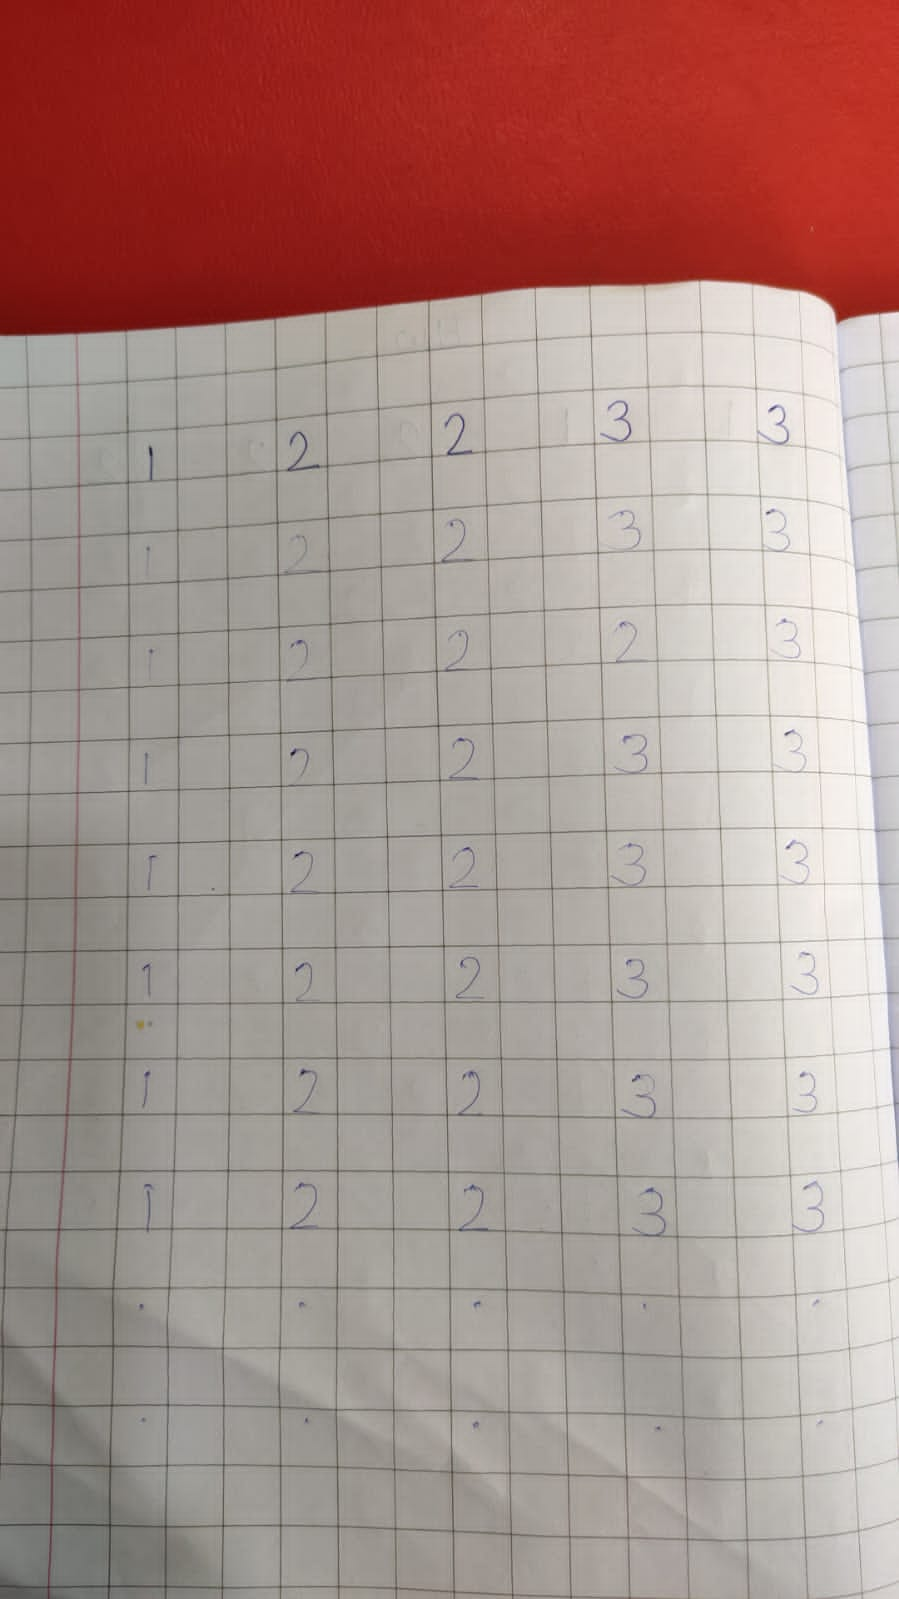 1 2 2 3 3
1 2 2 3 3
1 2 2 2 3
1 2 2 3 3
1 . 2 2 3 3
1 2 2 3 3
1 2 2 3 3
1 2 2 3 3
. . . . .
. . . . .